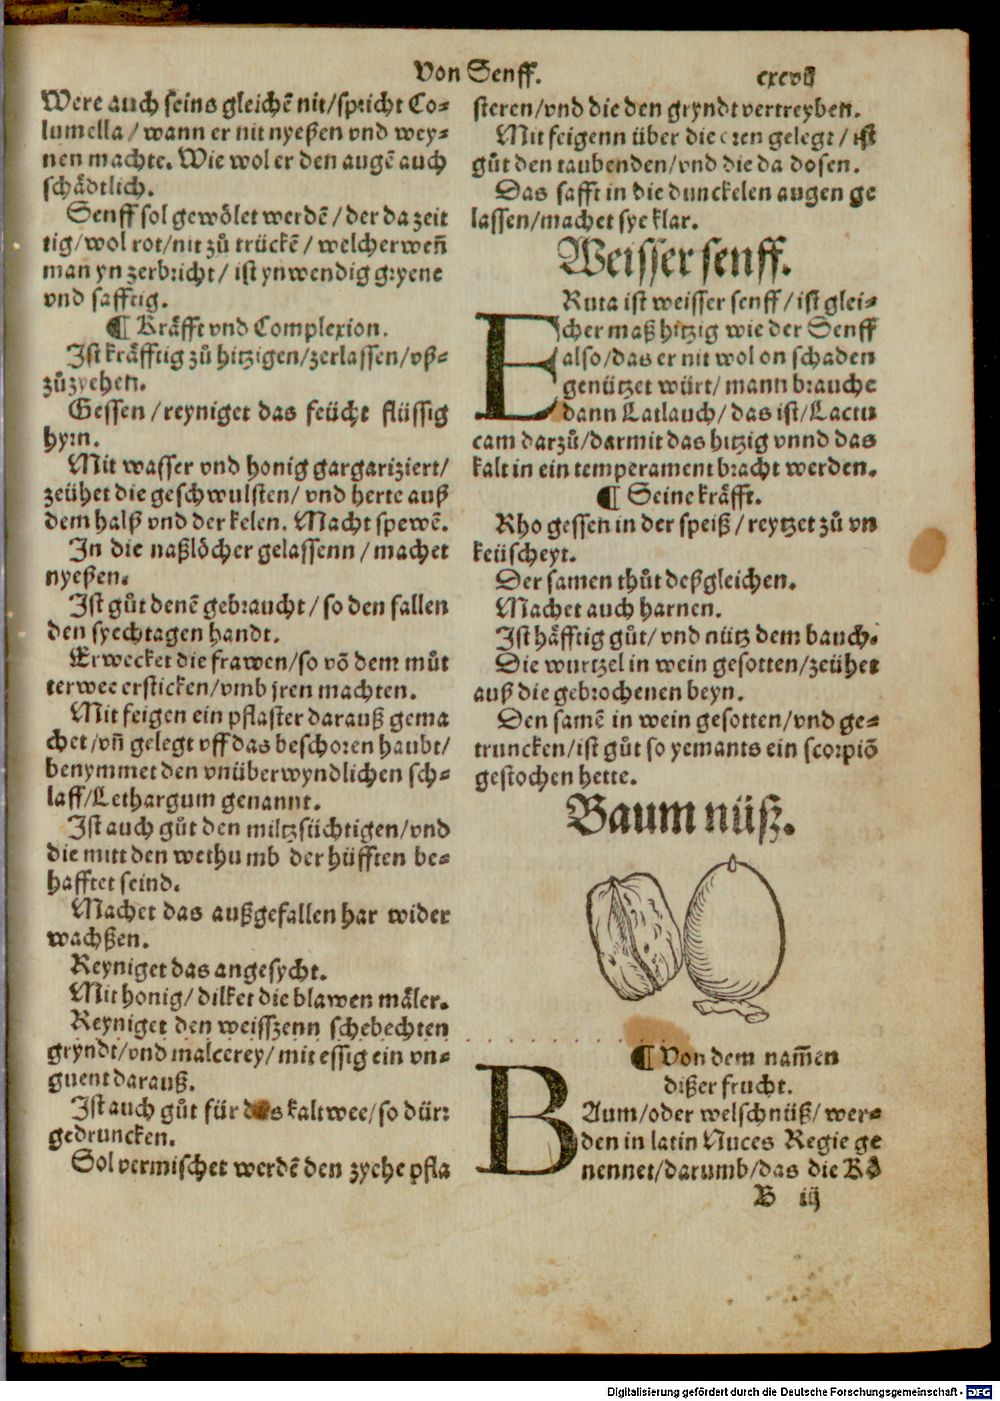 Von Senff.
Were auch seins gleichē nit/spricht Co-
lumella / wann er nit nyeßen vnd wey-
nen machte. Wie wol er den augē auch
schådtlich.
Senff sol gewölet werdē / der da zeit
tig/wol rot/nit zů trückē / welcher weñ
man yn zerbricht / ist ynwendig gryene
vnd safftig.
¶ Kråfft vnd Complexion.
Ist kråfftig zů hitzigen/zerlassen/vß-
zůzyehen.
Gessen /reyniget das feücht flüssig
hyrn.
Mit wasser vnd honig gargariziert/
zeühet die geschwulsten/ vnd herte auß
dem halß vnd der kelen. Macht spewē.
In die naßlöcher gelassenn / machet
nyeßen.
Ist gůt denē gebraucht / so den fallen
den syechtagen handt.
Erwecket die frawen/so vō dem můt
terwee ersticken/vmb jren machten.
Mit feigen ein pflaster darauß gema
chet /vñ gelegt vff das beschoren haubt/
benymmet den vnüberwyndlichen sch-
laff/Lethargum genannt.
Ist auch gůt den miltzsüchtigen/vnd
die mitt den wethumb der hüfften be-
hafftet seind.
Machet das außgefallen har wider
wachßen.
Reyniget das angesycht.
Mit honig/ dilket die blawen måler.
Reyniget den weisszenn schebechten
gryndt/vnd malcerey/ mit essig ein vn-
guent darauß.
Ist auch gůt für das kaltwee/so dürr
gedruncken.
Sol vermischet werdē den zyche pfla
steren/vnd die den gryndt vertreyben.
Mit feigenn über die oren gelegt / ist
gůt den taubenden/vnd die da dosen.
Das safft in die dunckelen augen ge
lassen/machet sye klar.
Weisser senff.
ERuta ist weisser senff / ist glei-
cher maß hitzig wie der Senff
also/das er nit wol on schaden
genützet würt/ mann brauche
dann Latlauch/ das ist/ Lactu
cam darzů/darmit das hitzig vnnd das
kalt in ein temperament bracht werden.
¶ Seine kråfft.
Rho gessen in der speiß / reytzet zů vn
keüscheyt.
Der samen thůt deßgleichen.
Machet auch harnen.
Ist håfftig gůt/ vnd nütz dem bauch.
Die wurtzel in wein gesotten/zeühet
auß die gebrochenen beyn.
Den samē in wein gesotten/vnd ge-
truncken/ist gůt so yemants ein scorpiō
gestochen hette.
Baum nüß.
¶ Von dem nam̄en
dißer frucht.
BAum/oder welsch nüß/ wer-
den in latin Nuces Regie ge
nennet/darumb/das die Rö
B iij
Digitalisierung gefördert durch die Deutsche Forschungsgemeinschaft - DFG